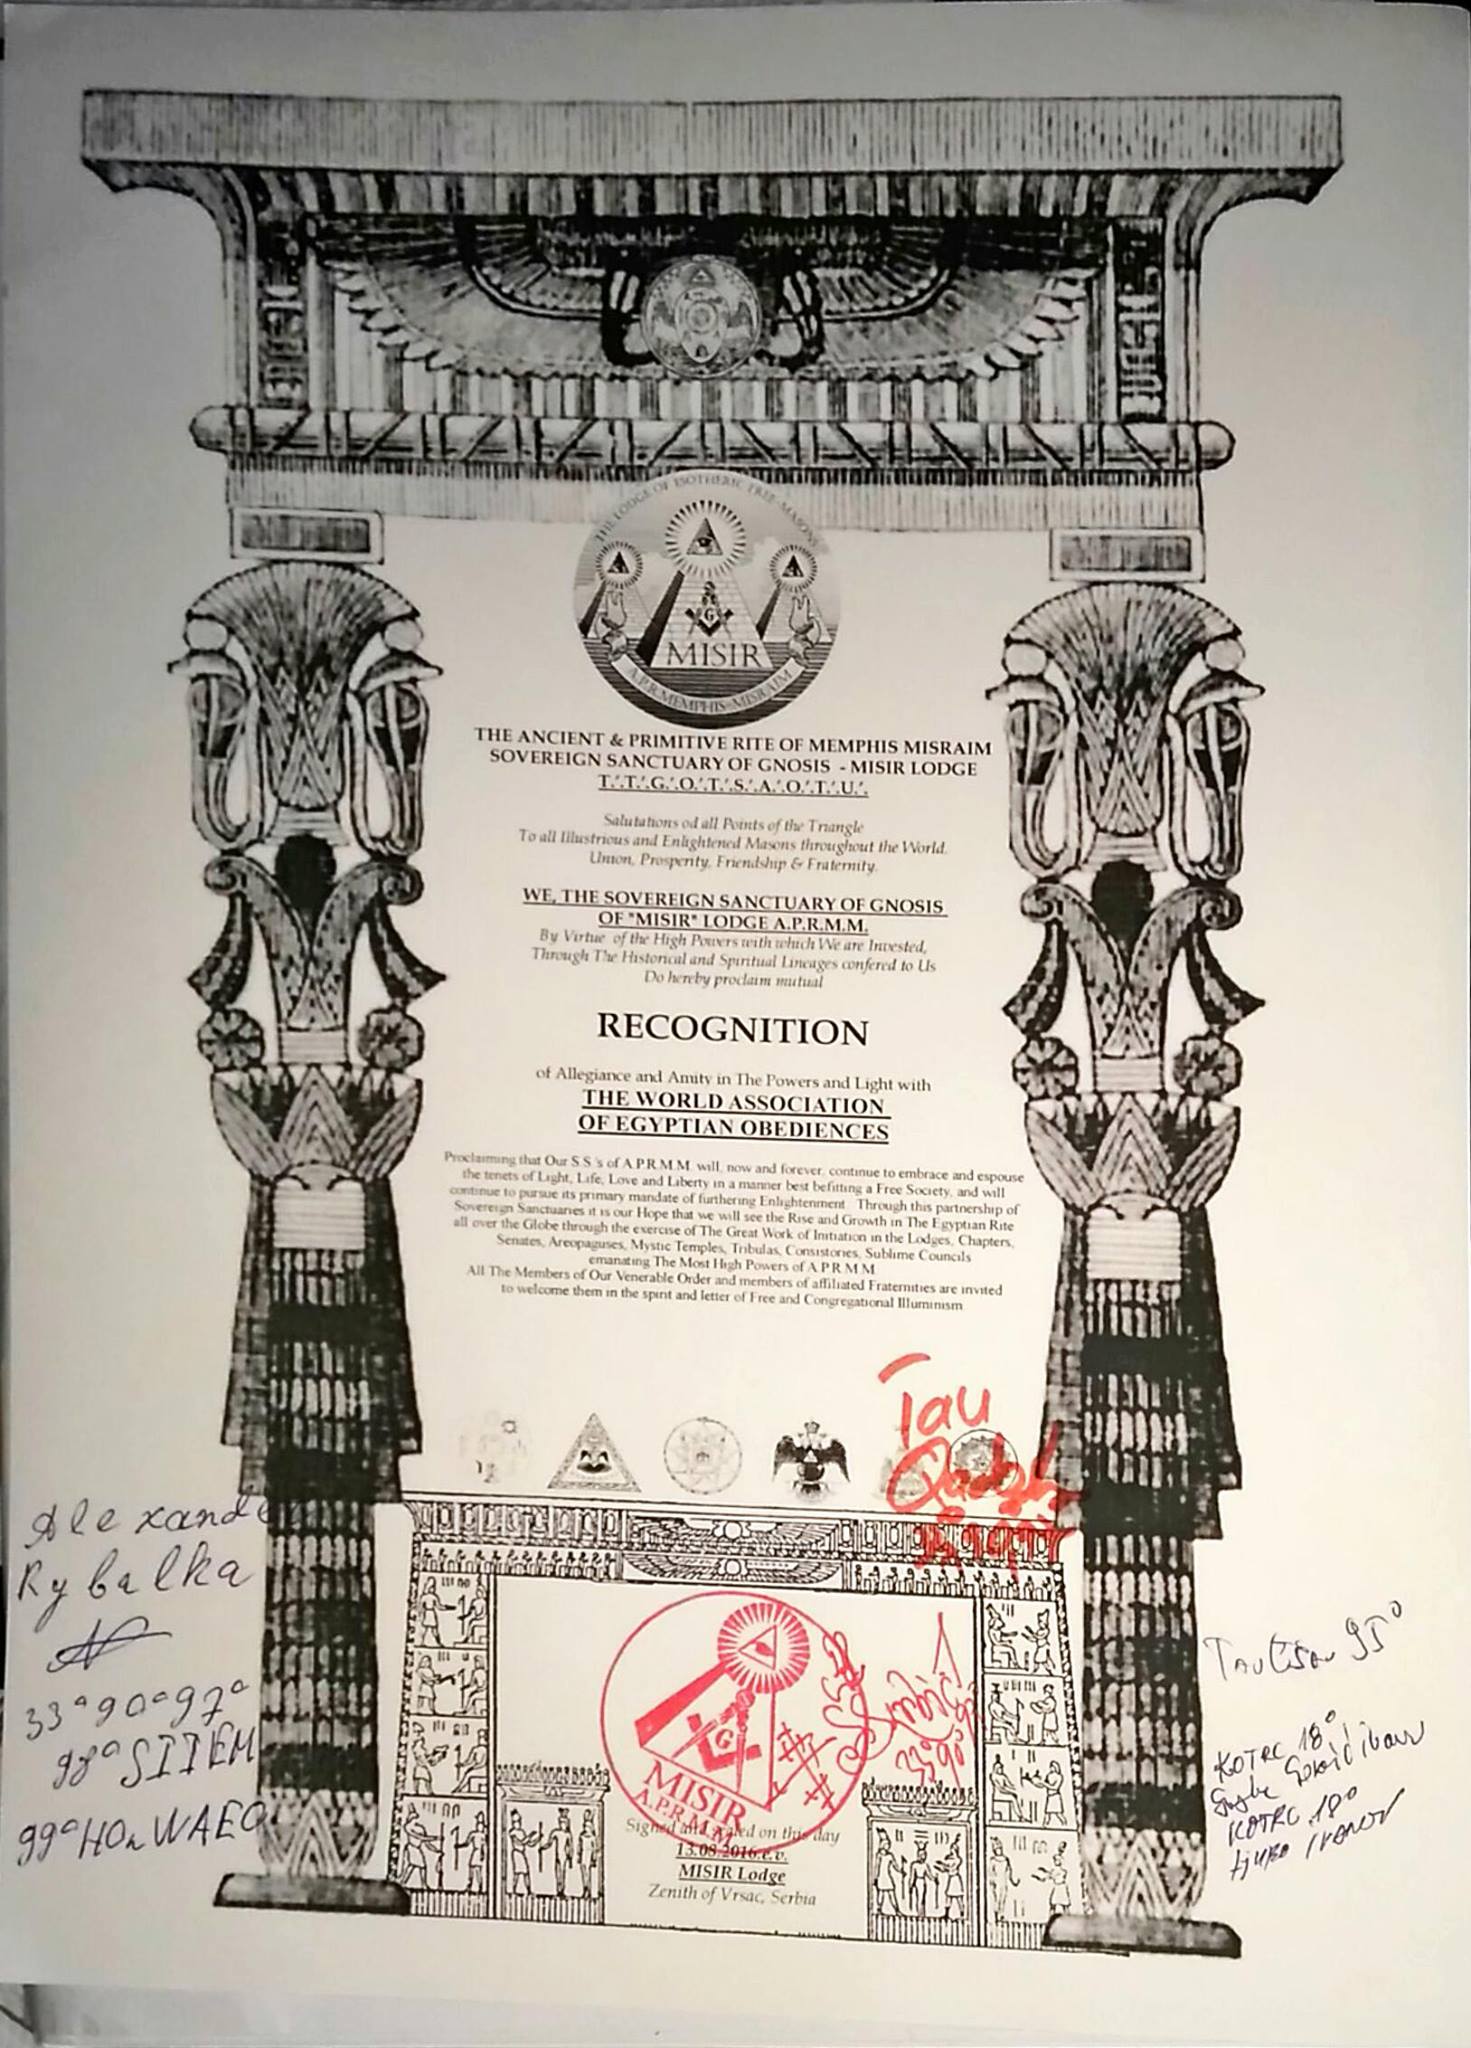 THE LODGE OF ESOTHERIC FREE-MASONS
G
MISIR
A.P.R.MEMPHIS-MISRAIM
THE ANCIENT & PRIMITIVE RITE OF MEMPHIS MISRAIM
SOVEREIGN SANCTUARY OF GNOSIS - MISIR LODGE
T.'.T.'.G.'.O.'.T.'.S.'.A.'.O.'.T.'.U.'.
Salutations od all Points of the Triangle
To all Illustrious and Enlightened Masons throughout the World.
Union, Prosperity, Friendship & Fraternity.
WE, THE SOVEREIGN SANCTUARY OF GNOSIS
OF "MISIR" LODGE A.P.R.M.M.
By Virtue of the High Powers with which We are Invested,
Through The Historical and Spiritual Lineages confered to Us
Do hereby proclaim mutual
RECOGNITION
of Allegiance and Amity in The Powers and Light with
THE WORLD ASSOCIATION
OF EGYPTIAN OBEDIENCES
Proclaiming that Our S.S.'s of A.P.R.M.M. will, now and forever, continue to embrace and espouse
the tenets of Light, Life, Love and Liberty in a manner best befitting a Free Society, and will
continue to pursue its primary mandate of furthering Enlightenment. Through this partnership of
Sovereign Sanctuaries it is our Hope that we will see the Rise and Growth in The Egyptian Rite
all over the Globe through the exercise of The Great Work of Initiation in the Lodges, Chapters,
Senates, Areopaguses, Mystic Temples, Tribulas, Consistories, Sublime Councils
emanating The Most High Powers of A.P.R.M.M.
All The Members of Our Venerable Order and members of affiliated Fraternities are invited
to welcome them in the spirit and letter of Free and Congregational Illuminism
Tau
Alexander
Rybalka
33° 90° 97°
98° SIIEM
99° HOn WAEO
G
MISIR
A.P.R.M.M
33° 90°
95°
KOTRC 18°
KOTRC 18°
Signed and sealed on this day
13.08.2016.e.v.
MISIR Lodge
Zenith of Vrsac, Serbia